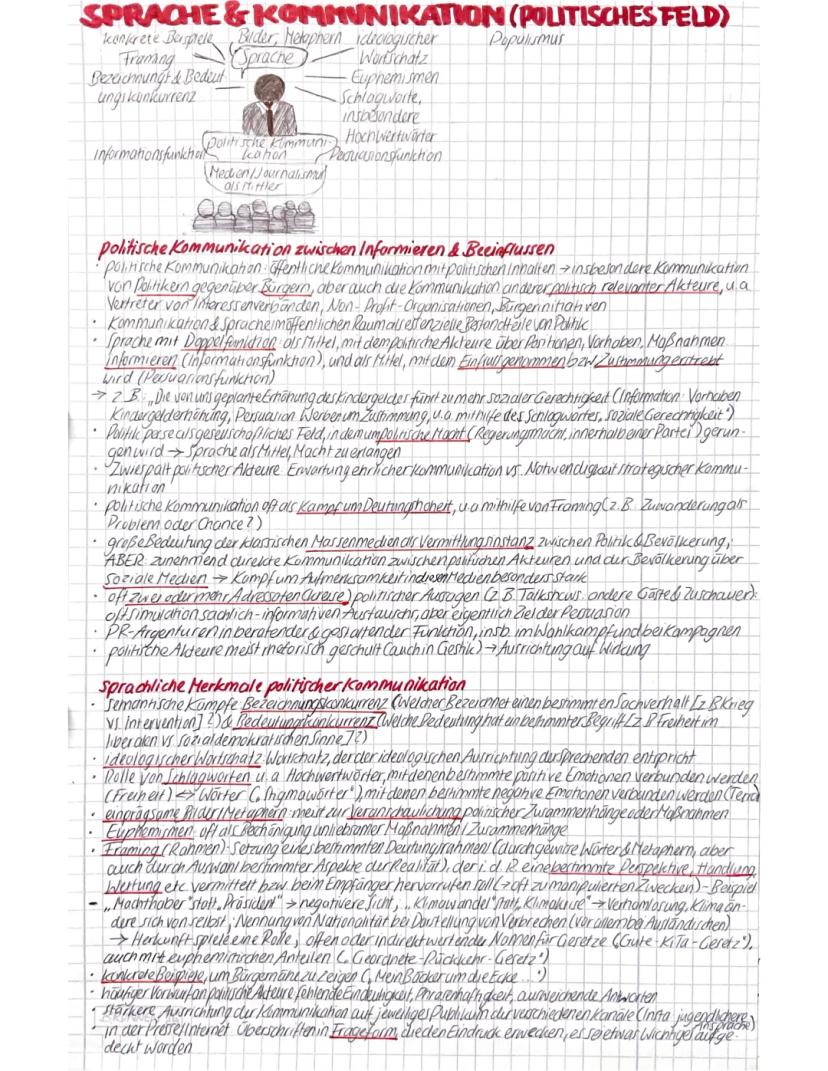 SPRACHE & KOMMUNIKATION (POLITISCHES FELD)
konkrete Beispiele
Bilder, Metaphern
ideologischer
Wortschatz
Populismus
Framing
Sprache
Euphemismen
Bezeichnungs & Bedeut
ungskonkurrenz
Schlagworte,
insbesondere
Hochwertwörter
Informationsfunktion
politische Kommuni-
kation
Persuasionsfunktion
Medien/Journalismus
als Mittler
politische Kommunikation zwischen Informieren & Beeinflussen
· politische Kommunikation: öffentliche Kommunikation mit politischen Inhalten → insbesondere Kommunikation
von Politikern gegenüber Bürgern, aber auch die Kommunikation anderer politisch relevanter Akteure, u.a
Vertreter von Interessenverbänden, Non-Profit-Organisationen, Bürgerinitiativen
· Kommunikation & Sprache im öffentlichen Raum als essenzielle Bestandteile von Politik
· Sprache mit Doppelfunktion: als Mittel, mit dem politische Akteure über Positionen, Vorhaben, Maßnahmen
informieren (Informationsfunktion), und als Mittel, mit dem Einfluss genommen bzw Zustimmung erstrebt
wird (Persuasionsfunktion)
→ z.B.: „Die von uns geplante Erhöhung des Kindergeldes führt zu mehr sozialer Gerechtigkeit (Information: Vorhaben
Kindergelderhöhung, Persuasion: Werben um Zustimmung, u.a. mithilfe des Schlagwortes „soziale Gerechtigkeit")
· Politik per se als gesellschaftliches Feld, in dem um politische Macht (Regierungsmacht, innerhalb einer Partei) gerun-
gen wird → Sprache als Mittel, Macht zu erlangen
· Zwiespalt politischer Akteure: Erwartung ehrlicher Kommunikation vs. Notwendigkeit strategischer Kommu-
nikation
· politische Kommunikation oft als Kampf um Deutungshoheit, u.a mithilfe von Framing (z.B. Zuwanderung als
Problem oder Chance?)
· große Bedeutung der klassischen Massenmedien als Vermittlungsinstanz zwischen Politik & Bevölkerung,
ABER: zunehmend direkte Kommunikation zwischen politischen Akteuren und der Bevölkerung über
Soziale Medien → Kampf um Aufmerksamkeit in diesen Medien besonders stark
· oft zwei oder mehr Adressaten(kreise) politischer Aussagen (z.B. Talkshows: andere Gäste & Zuschauer):
oft Simulation sachlich-informativen Austauschs, aber eigentlich Ziel der Persuasion
· PR-Argenturen in beratender & gestaltender Funktion, insb. im Wahlkampf und bei Kampagnen
· politische Akteure meist rhetorisch geschult (auch in Gestik) → Ausrichtung auf Wirkung
sprachliche Merkmale politischer Kommunikation
· semantische Kämpfe: Bezeichnungskonkurrenz (Welcher Bezeichnet einen bestimmten Sachverhalt [z.B Krieg
vs. Intervention]?) & Bedeutungskonkurrenz (Welche Bedeutung hat ein bestimmter Begriff [z.B Freiheit im
liberalen vs sozialdemokratischen Sinne]?)
· ideologischer Wortschatz: Wortschatz, der der ideologischen Ausrichtung der Sprechenden entspricht
· Rolle von Schlagworten u.a. Hochwertwörter, mit denen bestimmte positive Emotionen verbunden werden
(Freiheit) ↔ Wörter („Stigmawörter"), mit denen bestimmte negative Emotionen verbunden werden (Terror)
· einprägsame Bilder/Metaphern: meist zur Veranschaulichung politischer Zusammenhänge oder Maßnahmen
· Euphemismen: oft als Beschönigung unliebsamer Maßnahmen/Zusammenhänge
· Framing (Rahmen): Setzung eines bestimmten Deutungsrahmen (durch gewisse Wörter & Metaphern, aber
auch durch Auswahl bestimmter Aspekte der Realität), der i.d.R. eine bestimmte Perspektive, Handlung,
Wertung etc. vermittelt bzw. beim Empfänger hervorrufen soll (→ oft zu manipulierten Zwecken) - Beispiel
- „Machthaber" statt „Präsident" → negativere Sicht, „Klimawandel" statt „Klimakrise" → Verharmlosung, Klima än-
dere sich von selbst, Nennung von Nationalität bei Darstellung von Verbrechen (vor allem bei Ausländischen)
→ Herkunft spiele eine Rolle, offen oder indirekt wertende Namen für Gesetze („Gute-KiTa-Gesetz"),
auch mit euphemistischen Anteilen („Geordnete-Rückkehr-Gesetz")
· konkrete Beispiele, um Bürgernähe zu zeigen („Mein Bäcker um die Ecke...")
· häufiger Vorwurf an politische Akteure: fehlende Eindeutigkeit, Phrasenhaftigkeit, ausweichende Antworten
· stärkere Ausrichtung der Kommunikation auf jeweiliges Publikum der verschiedenen Kanäle (Insta: jugendlichere
Ansprache)
· in der Presse/Internet: Überschriften in Frageform, die den Eindruck erwecken, es sei etwas Wichtiges aufge-
deckt worden